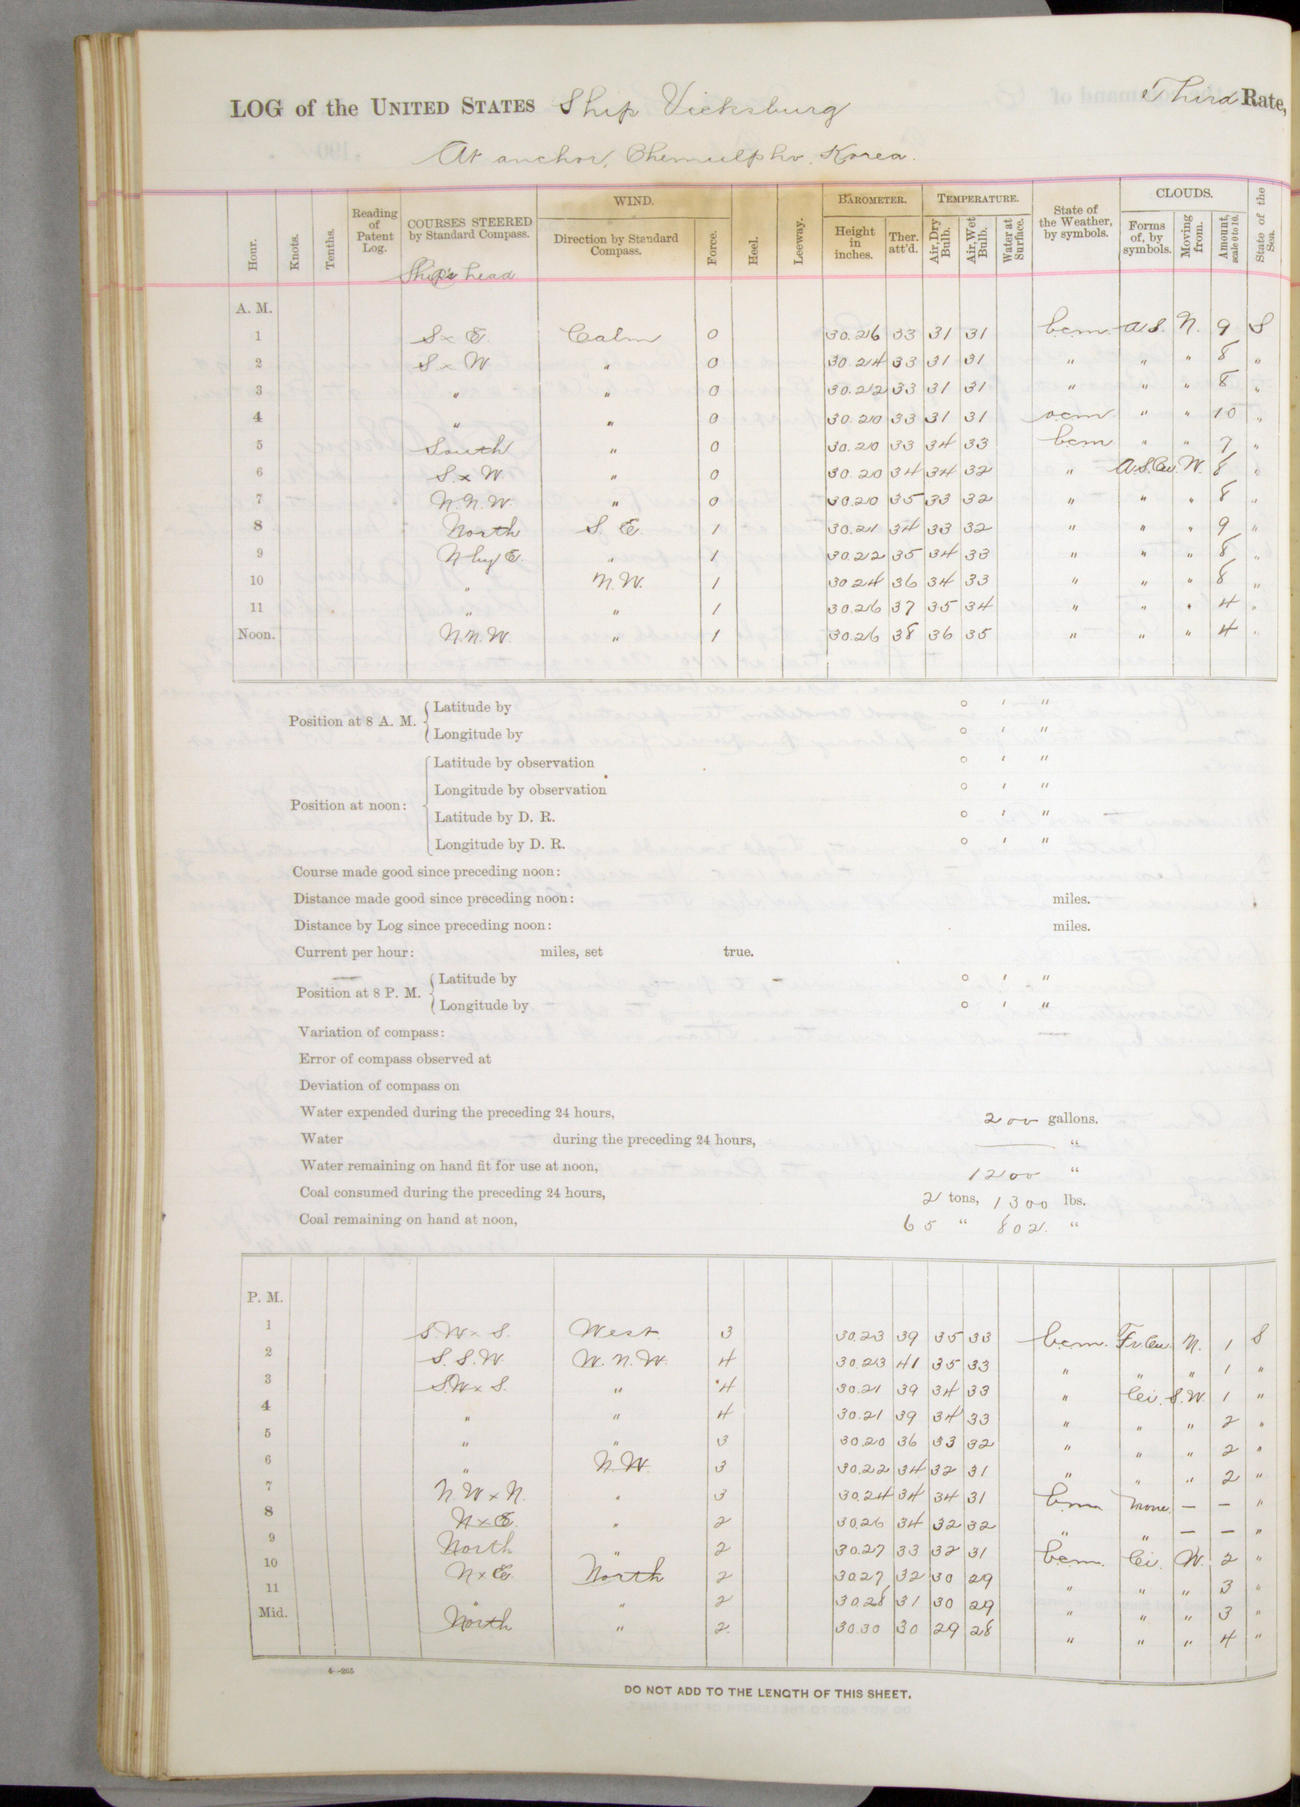 LOG of the UNITED STATES Ship Vicksburg Third Rate,
At anchor, Chemulpho, Korea.
Hour. Knots. Tenths. Reading of Patent Log. COURSES STEERED by Standard Compass. WIND. Direction by Standard Compass. Force. Heel. Leeway. BAROMETER. Height in inches. Ther. att'd. TEMPERATURE. Air, Dry Bulb. Air, Wet Bulb. Water at Surface. State of the Weather, by symbols. CLOUDS. Forms of, by symbols. Moving from. Amount, scale 0 to 10. State of the Sea.
Ship's head
A. M.
1 S x E. Calm 0 30.26 33 31 31 bcm A.S. N. 9 S
2 S x W " 0 30.24 33 31 31 " " " 8 "
3 " " 0 30.22 33 31 31 " " " 8 "
4 " " 0 30.20 33 31 31 ocm " " 10 "
5 South " 0 30.20 33 34 33 bcm " " 7 "
6 S. x W " 0 30.20 34 34 32 " A.S.Cu. W. 8 "
7 N.N.W. " 0 30.20 35 33 32 " " " 8 "
8 North S. E. 1 30.21 34 33 32 " " " 9 "
9 N by E. " 1 30.22 35 34 33 " " " 8 "
10 " N.W. 1 30.24 36 34 33 " " " 8 "
11 " " 1 30.26 37 35 34 " " " 4 "
Noon. N.N.W. " 1 30.26 38 36 35 " " " 4 "
Position at 8 A. M. Latitude by ° ' "
Longitude by ° ' "
Position at noon: Latitude by observation ° ' "
Longitude by observation ° ' "
Latitude by D. R. ° ' "
Longitude by D. R. ° ' "
Course made good since preceding noon:
Distance made good since preceding noon: miles.
Distance by Log since preceding noon: miles.
Current per hour: miles, set true.
Position at 8 P. M. Latitude by ° ' "
Longitude by ° ' "
Variation of compass:
Error of compass observed at
Deviation of compass on
Water expended during the preceding 24 hours, 200 gallons.
Water during the preceding 24 hours, — "
Water remaining on hand fit for use at noon, 1200 "
Coal consumed during the preceding 24 hours, 2 tons, 1300 lbs.
Coal remaining on hand at noon, 65 " 802. "
P. M.
1 S.W x S. West 3 30.23 39 35 33 bcm. Fr.Cu. N. 1 S
2 S.S.W. W.N.W. 4 30.23 41 35 33 " " " 1 "
3 S.W x S. " 4 30.21 39 34 33 " Ci. S.W. 1 "
4 " " 4 30.21 39 34 33 " " " 2 "
5 " " 3 30.20 36 33 32 " " " 2 "
6 " N.W. 3 30.22 34 32 31 " " " 2 "
7 N.W x N. " 3 30.24 34 34 31 bm None. — — "
8 N x E. " 2 30.26 34 32 32 " " — — "
9 North " 2 30.27 33 32 31 bcm. Ci. W. 2 "
10 N x E. North 2 30.27 32 30 29 " " " 3 "
11 " " 2 30.28 31 30 29 " " " 3 "
Mid. North " 2. 30.30 30 29 28 " " " 4 "
6—265
DO NOT ADD TO THE LENGTH OF THIS SHEET.